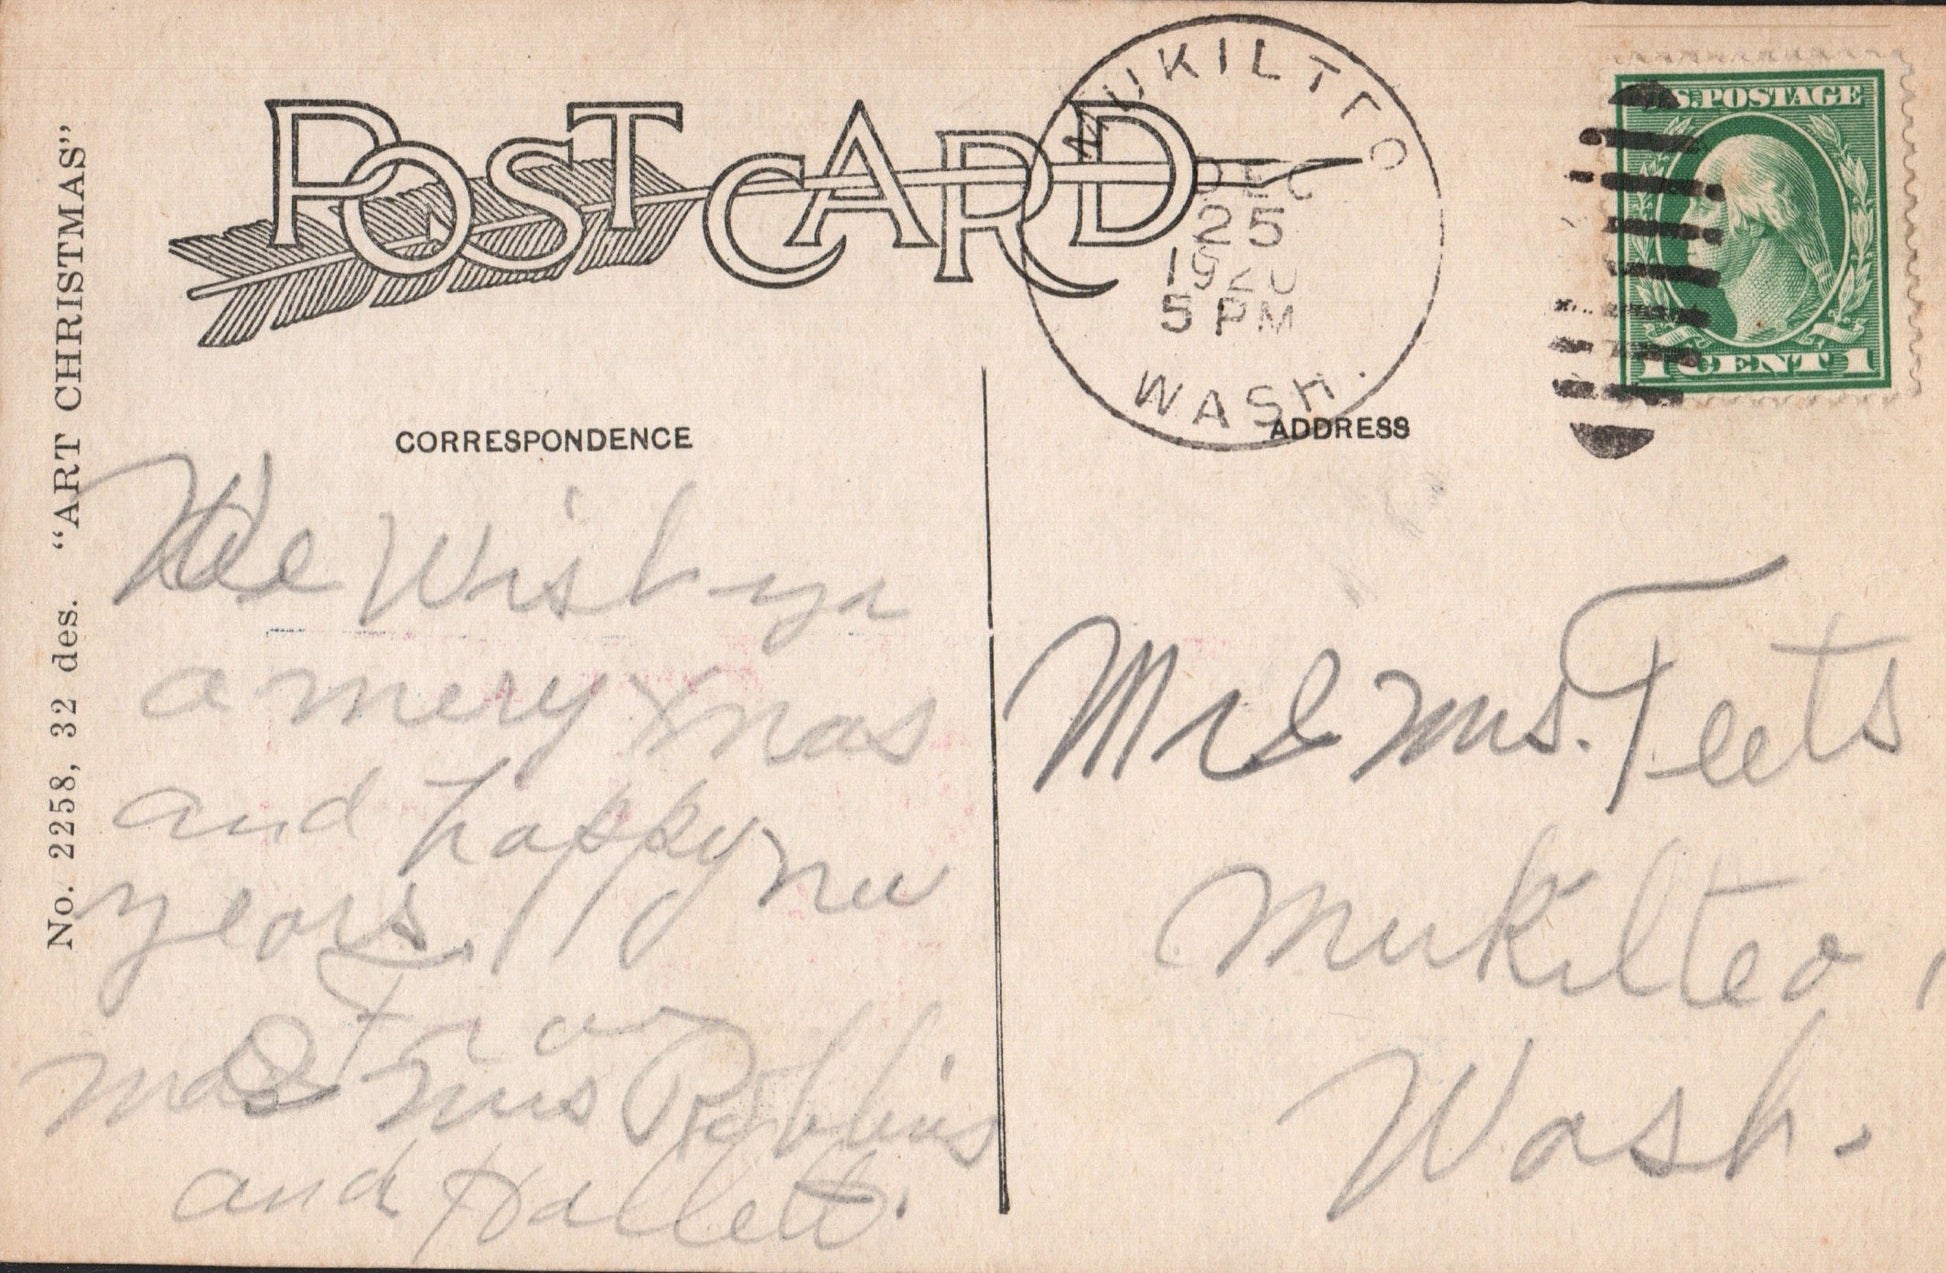 POST CARD
MUKILTEO
DEC
25
1920
5 PM
WASH.
U.S. POSTAGE
1 CENT 1
No. 2258, 32 des. "ART CHRISTMAS"
CORRESPONDENCE
We Wish you
a mery Xmas
and happy new
years.
From
Mr & Mrs Robbins
and Hallett.
ADDRESS
Mr & Mrs. Teets
Mukilteo,
Wash.